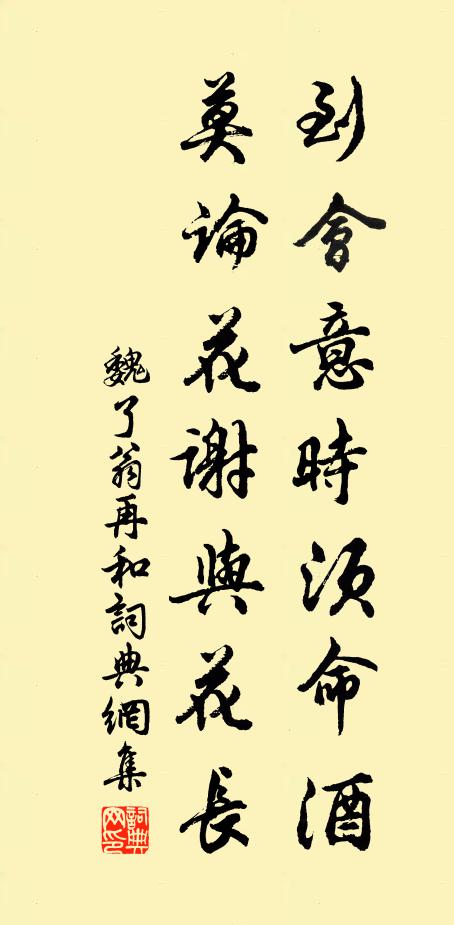 到會意時須命酒
莫論花謝與花長
魏了翁再和詞典網集
詞典網印